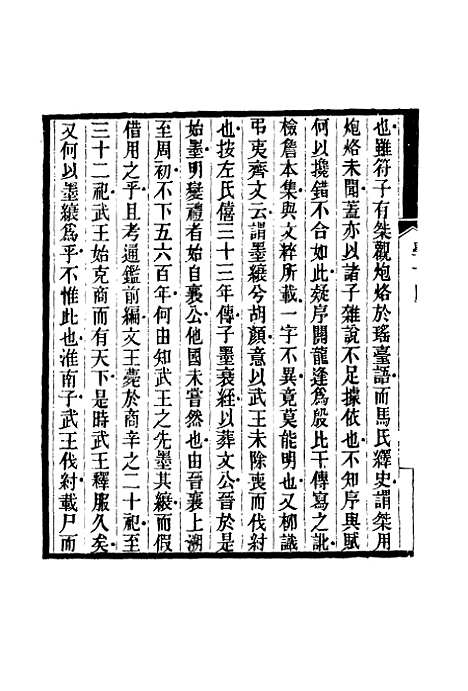 也雖符子有桀觀炮烙於瑤臺語而馬氏釋史謂桀用
炮烙未聞蓋亦以諸子雜說不足據依也不知序與賦
何以攙錯不合如此疑序開龍逢為殷比干傳寫之訛
檢詹本集與文粹所載一字不異竟莫能明也又柳識
弔夷齊文云謂墨縗兮胡顏意以武王未除喪而伐紂
也按左氏僖三十三年傳子墨衰絰以葬文公晉於是
始墨明變禮者始自襄公他國未嘗然也由晉襄上溯
至周初不下五六百年何由知武王之先墨其縗而假
借用之乎且考通鑑前編文王薨於商辛之二十祀至
三十二祀武王始克商而有天下是時武王釋服久矣
又何以墨縗爲乎不惟此也淮南子武王伐紂載尸而